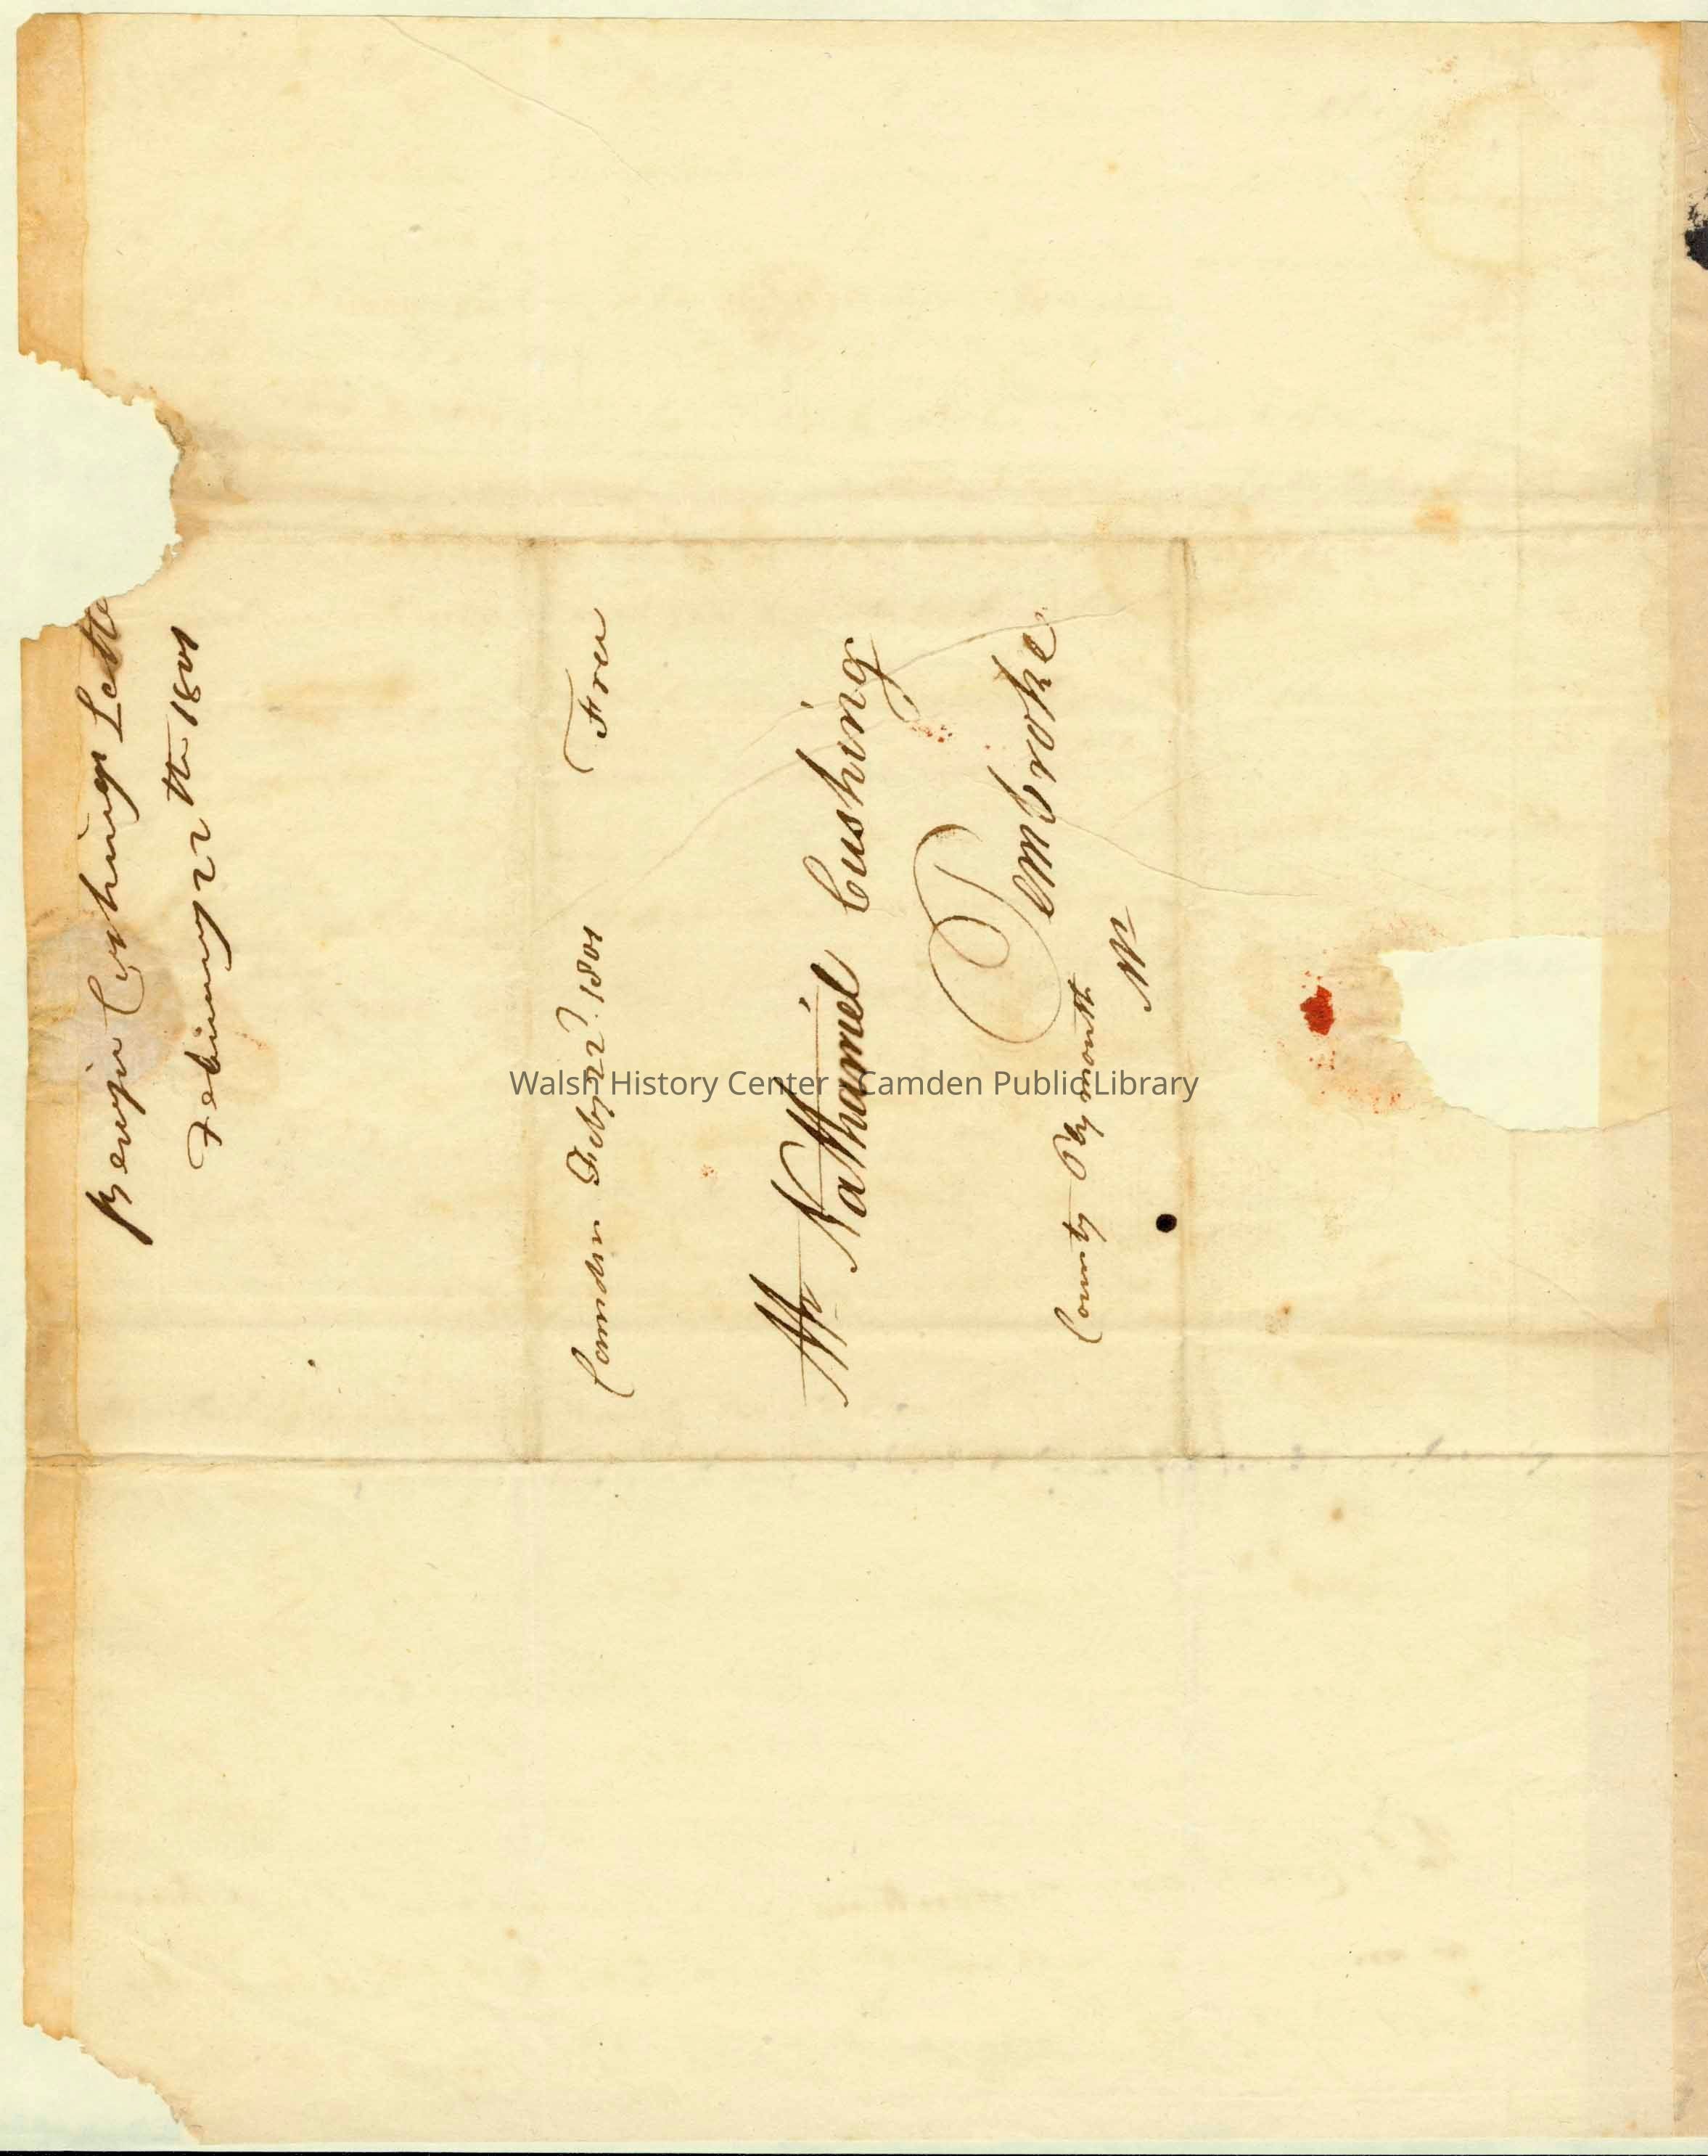 Benja Cushings Lette
February 22 the 1801
Camden Feby 22d. 1801 Free
Mr Nathaniel Cushing
Pembroke
County Plymouth
Walsh History Center - Camden Public Library